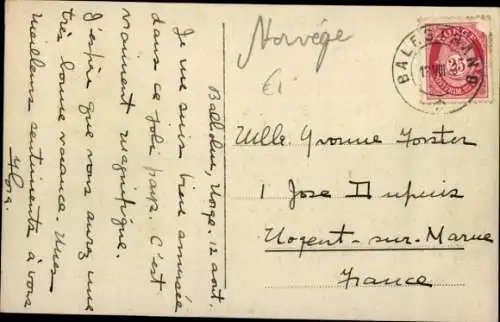 Balholm, Norge. 12 août.
Je me suis bien amusée
dans ce joli pays. C'est
vraiment magnifique.
J'espère que vous aurez une
très bonne vacance. Mes
meilleurs sentiments à vous
Norvége
BALESTRAND
NORGE
25
Mlle. Yvonne Forster
1 Jose Dupuis
Nogent-sur-Marne
France